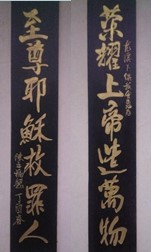 榮耀上帝造萬物
至尊耶穌救罪人